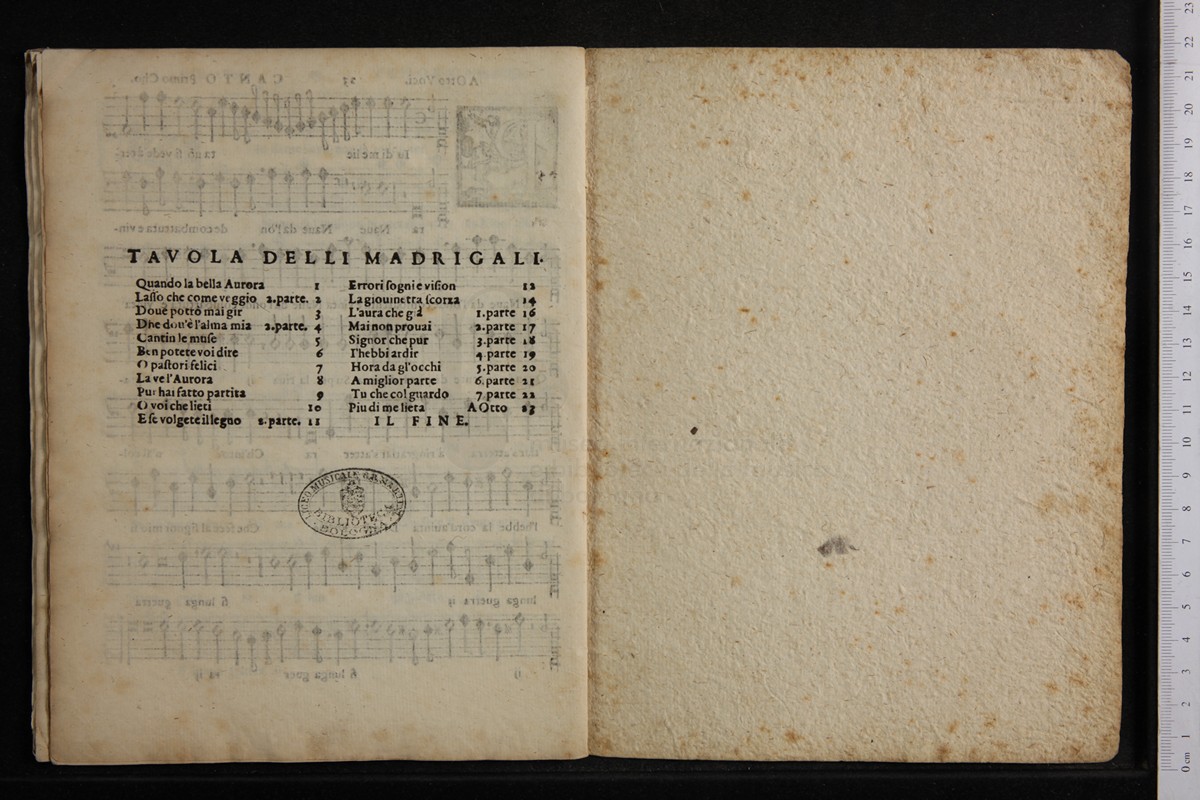 TAVOLA DELLI MADRIGALI.
Quando la bella Aurora 1
Lasso che come veggio 2.parte. 2
Doue potrò mai gir 3
Dhe dou'è l'alma mia 2.parte. 4
Cantin le muse 5
Ben potete voi dire 6
O pastori felici 7
La ve l'Aurora 8
Pur hai fatto partita 9
O voi che lieti 10
E se volgete il legno 2.parte. 11
Errori sogni e vision 12
La giouinetta scorza 14
L'aura che già 1.parte 16
Mai non prouai 2.parte 17
Signor che pur 3.parte 18
I'hebbi ardir 4.parte 19
Hora da gl'occhi 5.parte 20
A miglior parte 6.parte 21
Tu che col guardo 7 parte 22
Piu di me lieta A Otto 23
IL FINE.
LICEO MUSICALE
BIBLIOTECA
BOLOGNA
23
22
21
20
19
18
17
16
15
14
13
12
11
10
9
8
7
6
5
4
3
2
1
0 cm